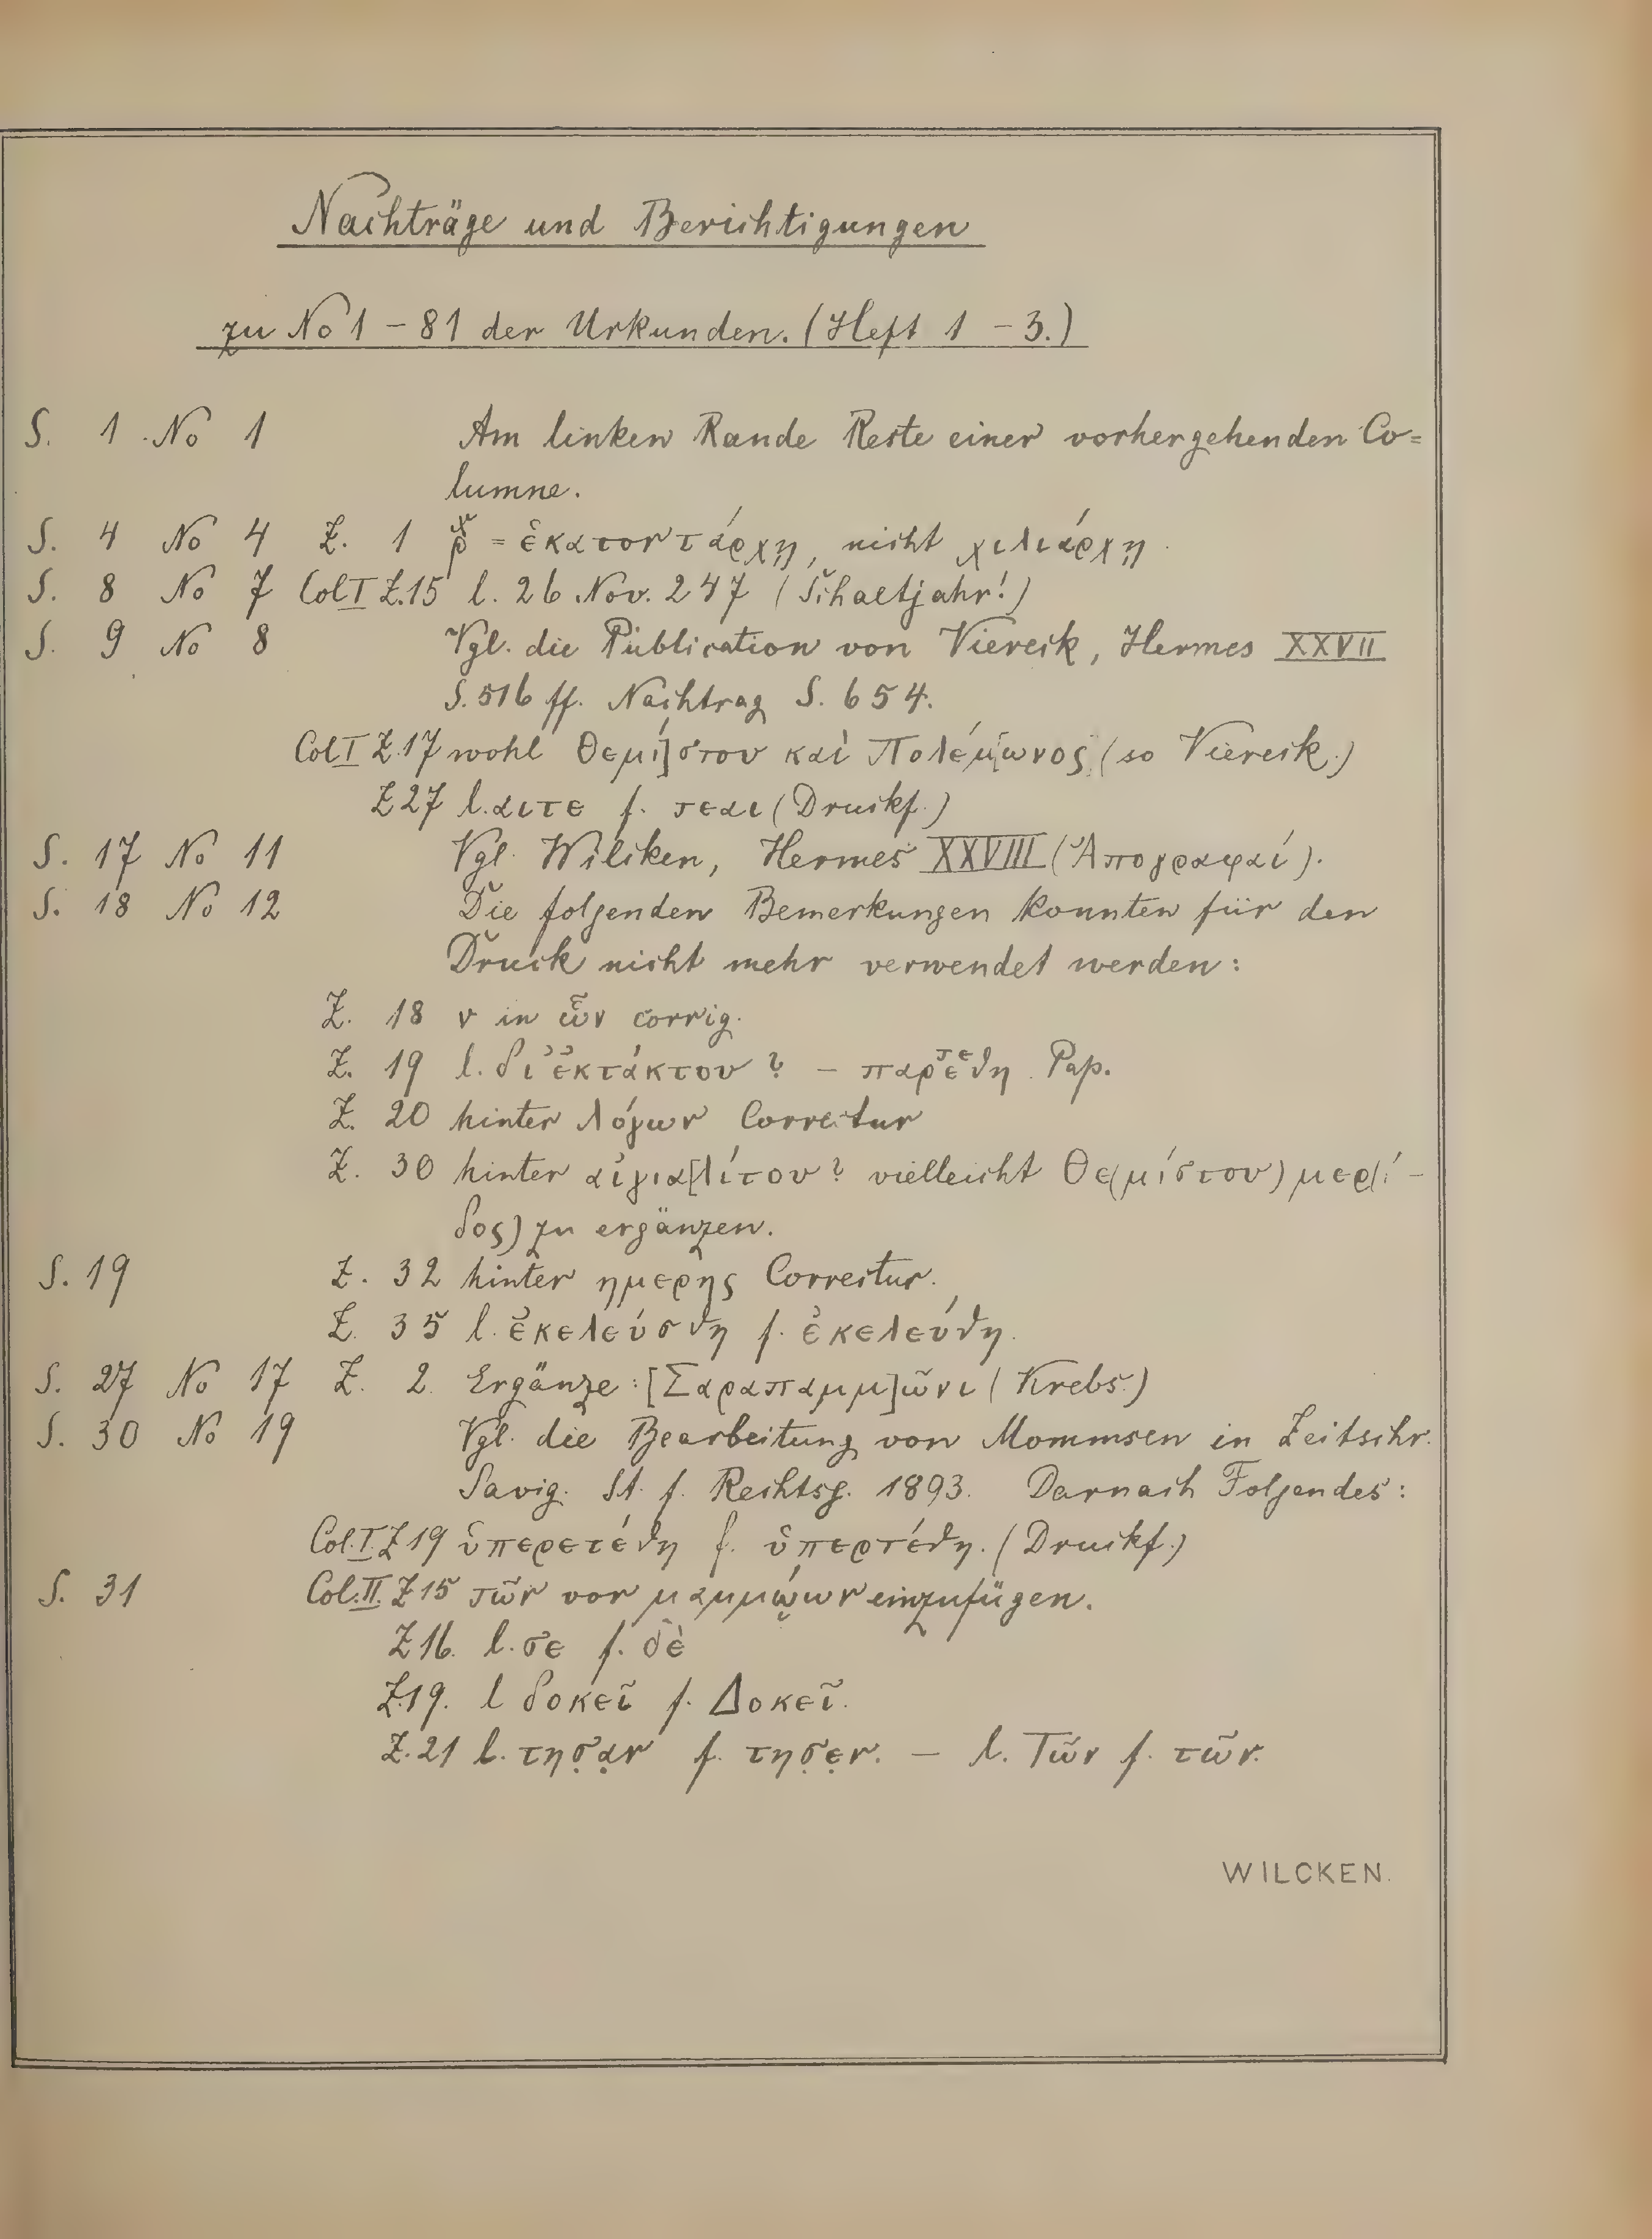 Nachträge und Berichtigungen
zu No 1 – 81 der Urkunden. (Heft 1 – 3.)
S. 1 No 1 Am linken Rande Reste einer vorhergehenden Co=
lumne.
S. 4 No 4 Z. 1 = ἑκατοντάρχῃ, nicht χιλιάρχῃ
S. 8 No 7 Col I Z.15 l. 26 Nov. 247 (Schaltjahr!)
S. 9 No 8 Vgl. die Publication von Viereck, Hermes XXVII
S. 516 ff. Nachtrag S. 654.
Col I Z.17 wohl Θεμί]στου καὶ Πολέμ[ωνος (so Viereck.)
Z 27 l. αιτε f. τεαι (Druckf.)
S. 17 No 11 Vgl. Wilcken, Hermes XXVIII (Ἀπογραφαί).
S. 18 No 12 Die folgenden Bemerkungen konnten für den
Druck nicht mehr verwendet werden:
Z. 18 ν in ὧν corrig.
Z. 19 l. δι' ἐκτάκτου? – παρετέθη Pap.
Z. 20 hinter λόγων Correctur
Z. 30 hinter αἰγια[λίτου? vielleicht Θε(μίστου) μερ(ί-
δος) zu ergänzen.
S. 19 Z. 32 hinter ημερης Correctur.
Z. 35 l. ἐκελεύσθη f. ἐκελεύθη.
S. 27 No 17 Z. 2. Ergänze: [Σαραπαμμ]ῶνι (Krebs.)
S. 30 No 19 Vgl. die Bearbeitung von Mommsen in Zeitschr.
Savig. St. f. Rechtsg. 1893. Darnach Folgendes:
Col. I. Z 19 ὑπερετέθη f. ὑπερτέθη. (Druckf.)
S. 31 Col. II. Z 15 τῶν vor μαμμῴων einzufügen.
Z 16. l. σε f. δὲ
Z.19. l δοκεῖ f. Δοκεῖ.
Z. 21 l. τησ̣α̣ν f. τησ̣ε̣ν. – l. Τῶν f. τῶν.
WILCKEN.